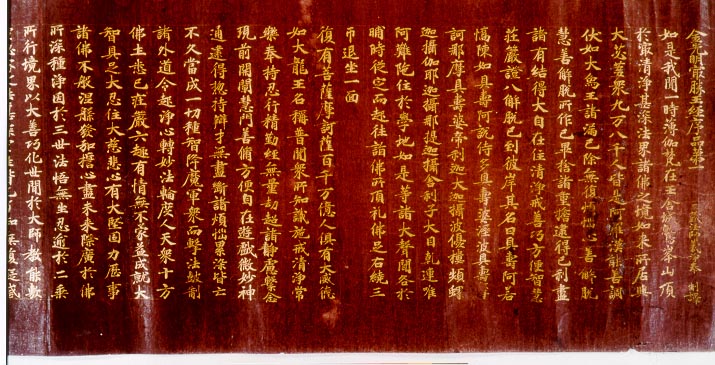 金光明最勝王經序品第一 三藏法師義淨奉 制譯
如是我聞一時薄伽梵在王舍城鷲峯山頂
於最清淨甚深法界諸佛之境如來所居與
大苾芻眾九万八千人皆是阿羅漢能善調
伏如大象王諸漏已除無復煩惱心善解脫
慧善解脫所作已畢捨諸重擔逮得己利盡
諸有結得大自在住清淨戒善巧方便智慧
莊嚴證八解脫已到彼岸其名曰具壽阿若
憍陳如具壽阿說侍多具壽婆濕波具壽摩
訶那摩具壽婆帝利迦大迦攝波優樓頻螺
迦攝伽耶迦攝那提迦攝舍利子大目乾連唯
阿難陀住於學地如是等諸大聲聞各於
晡時從定而起往詣佛所頂礼佛足右繞三
帀退坐一面
復有菩薩摩訶薩百千万億人俱有大威德
如大龍王名稱普聞眾所知識施戒清淨常
樂奉持忍行精勤經無量劫超諸靜慮繫念
現前開闡慧門善修方便自在遊戲微妙神
通逮得總持辯才無盡斷諸煩惱累染皆亡
不久當成一切種智降魔軍眾而擊法鼓制
諸外道令起淨心轉妙法輪度人天眾十方
佛土悉已莊嚴六趣有情無不蒙益成就大
智具足大忍住大慈悲心有大堅固力歷事
諸佛不般涅槃發弘誓心盡未來際廣於佛
所深種淨因於三世法悟無生忍逾於二乘
所行境界以大善巧化世間於大師教能敷